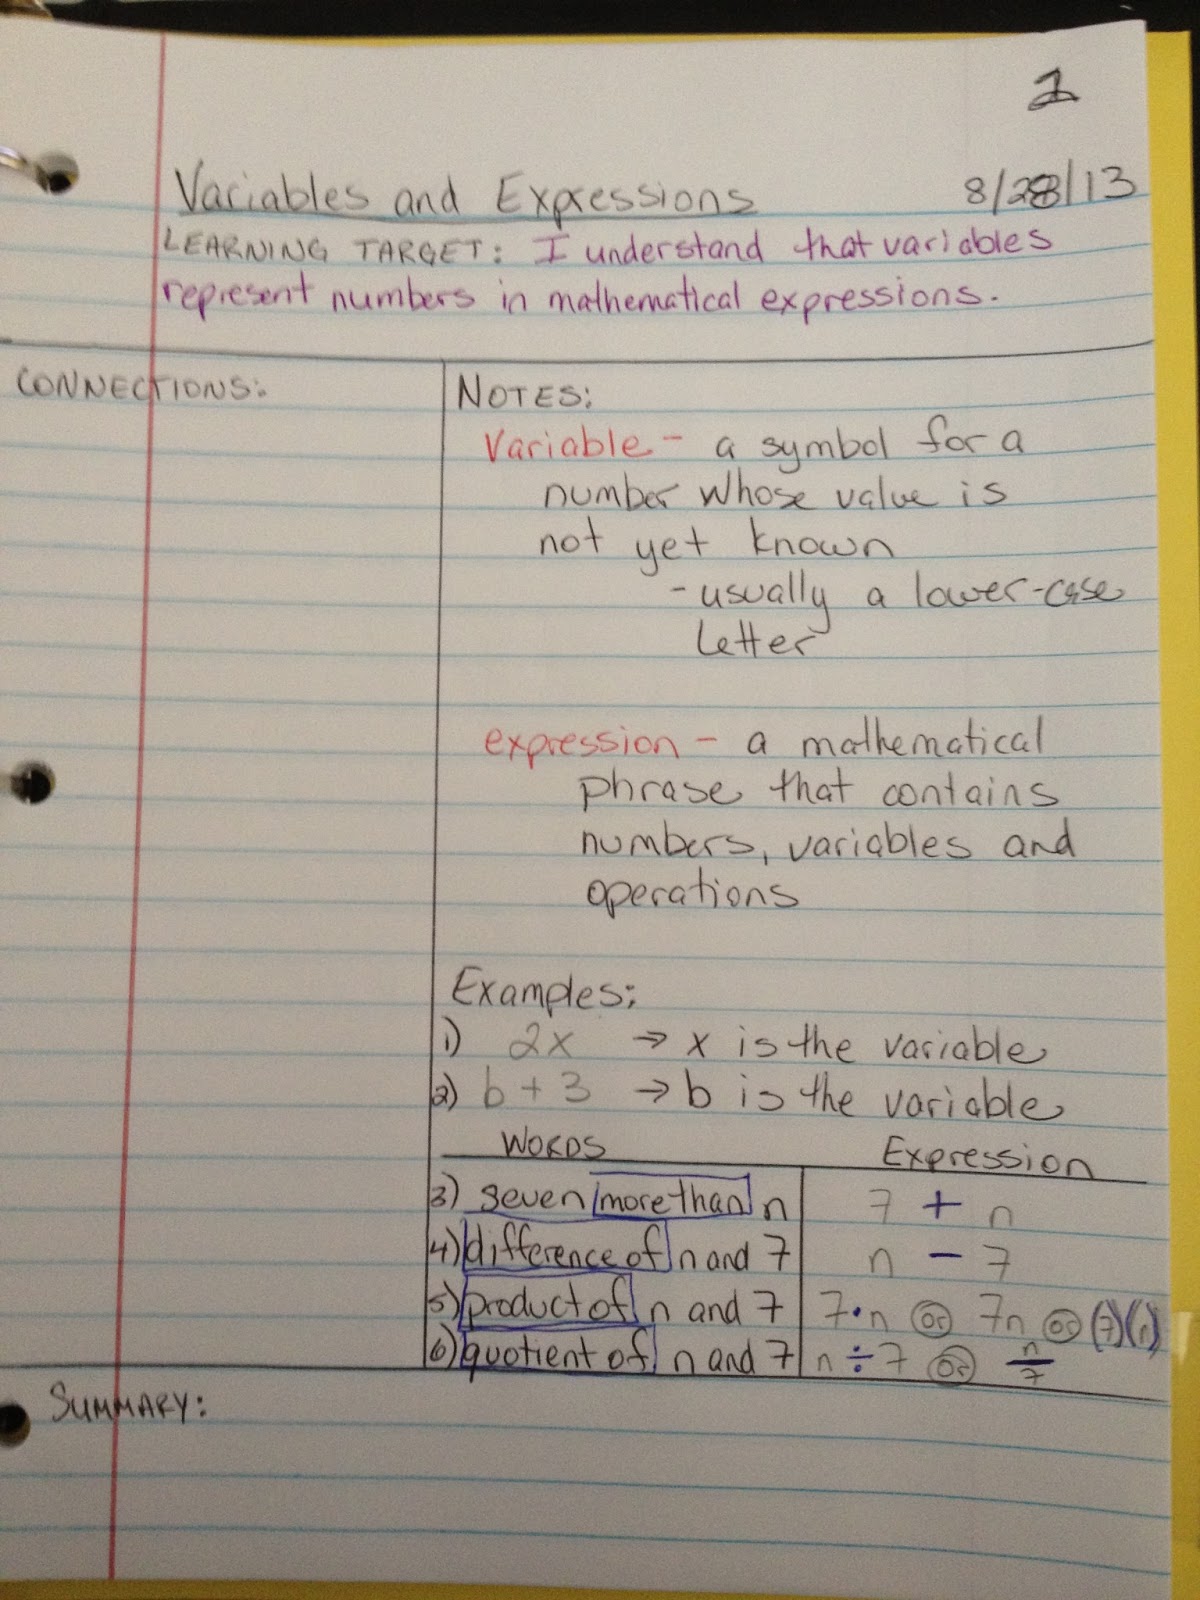 2
Variables and Expressions 8/28/13
LEARNING TARGET: I understand that variables
represent numbers in mathematical expressions.
CONNECTIONS:
NOTES:
Variable - a symbol for a
number whose value is
not yet known
- usually a lower-case
letter
expression - a mathematical
phrase that contains
numbers, variables and
operations
Examples:
1) 2x → x is the variable
2) b + 3 → b is the variable
WORDS Expression
3) seven more than n 7 + n
4) difference of n and 7 n - 7
5) product of n and 7 7·n or 7n or (7)(n)
6) quotient of n and 7 n ÷ 7 or n/7
SUMMARY: